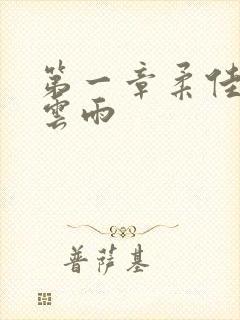 第一章柔佳
雲雨
普薩基